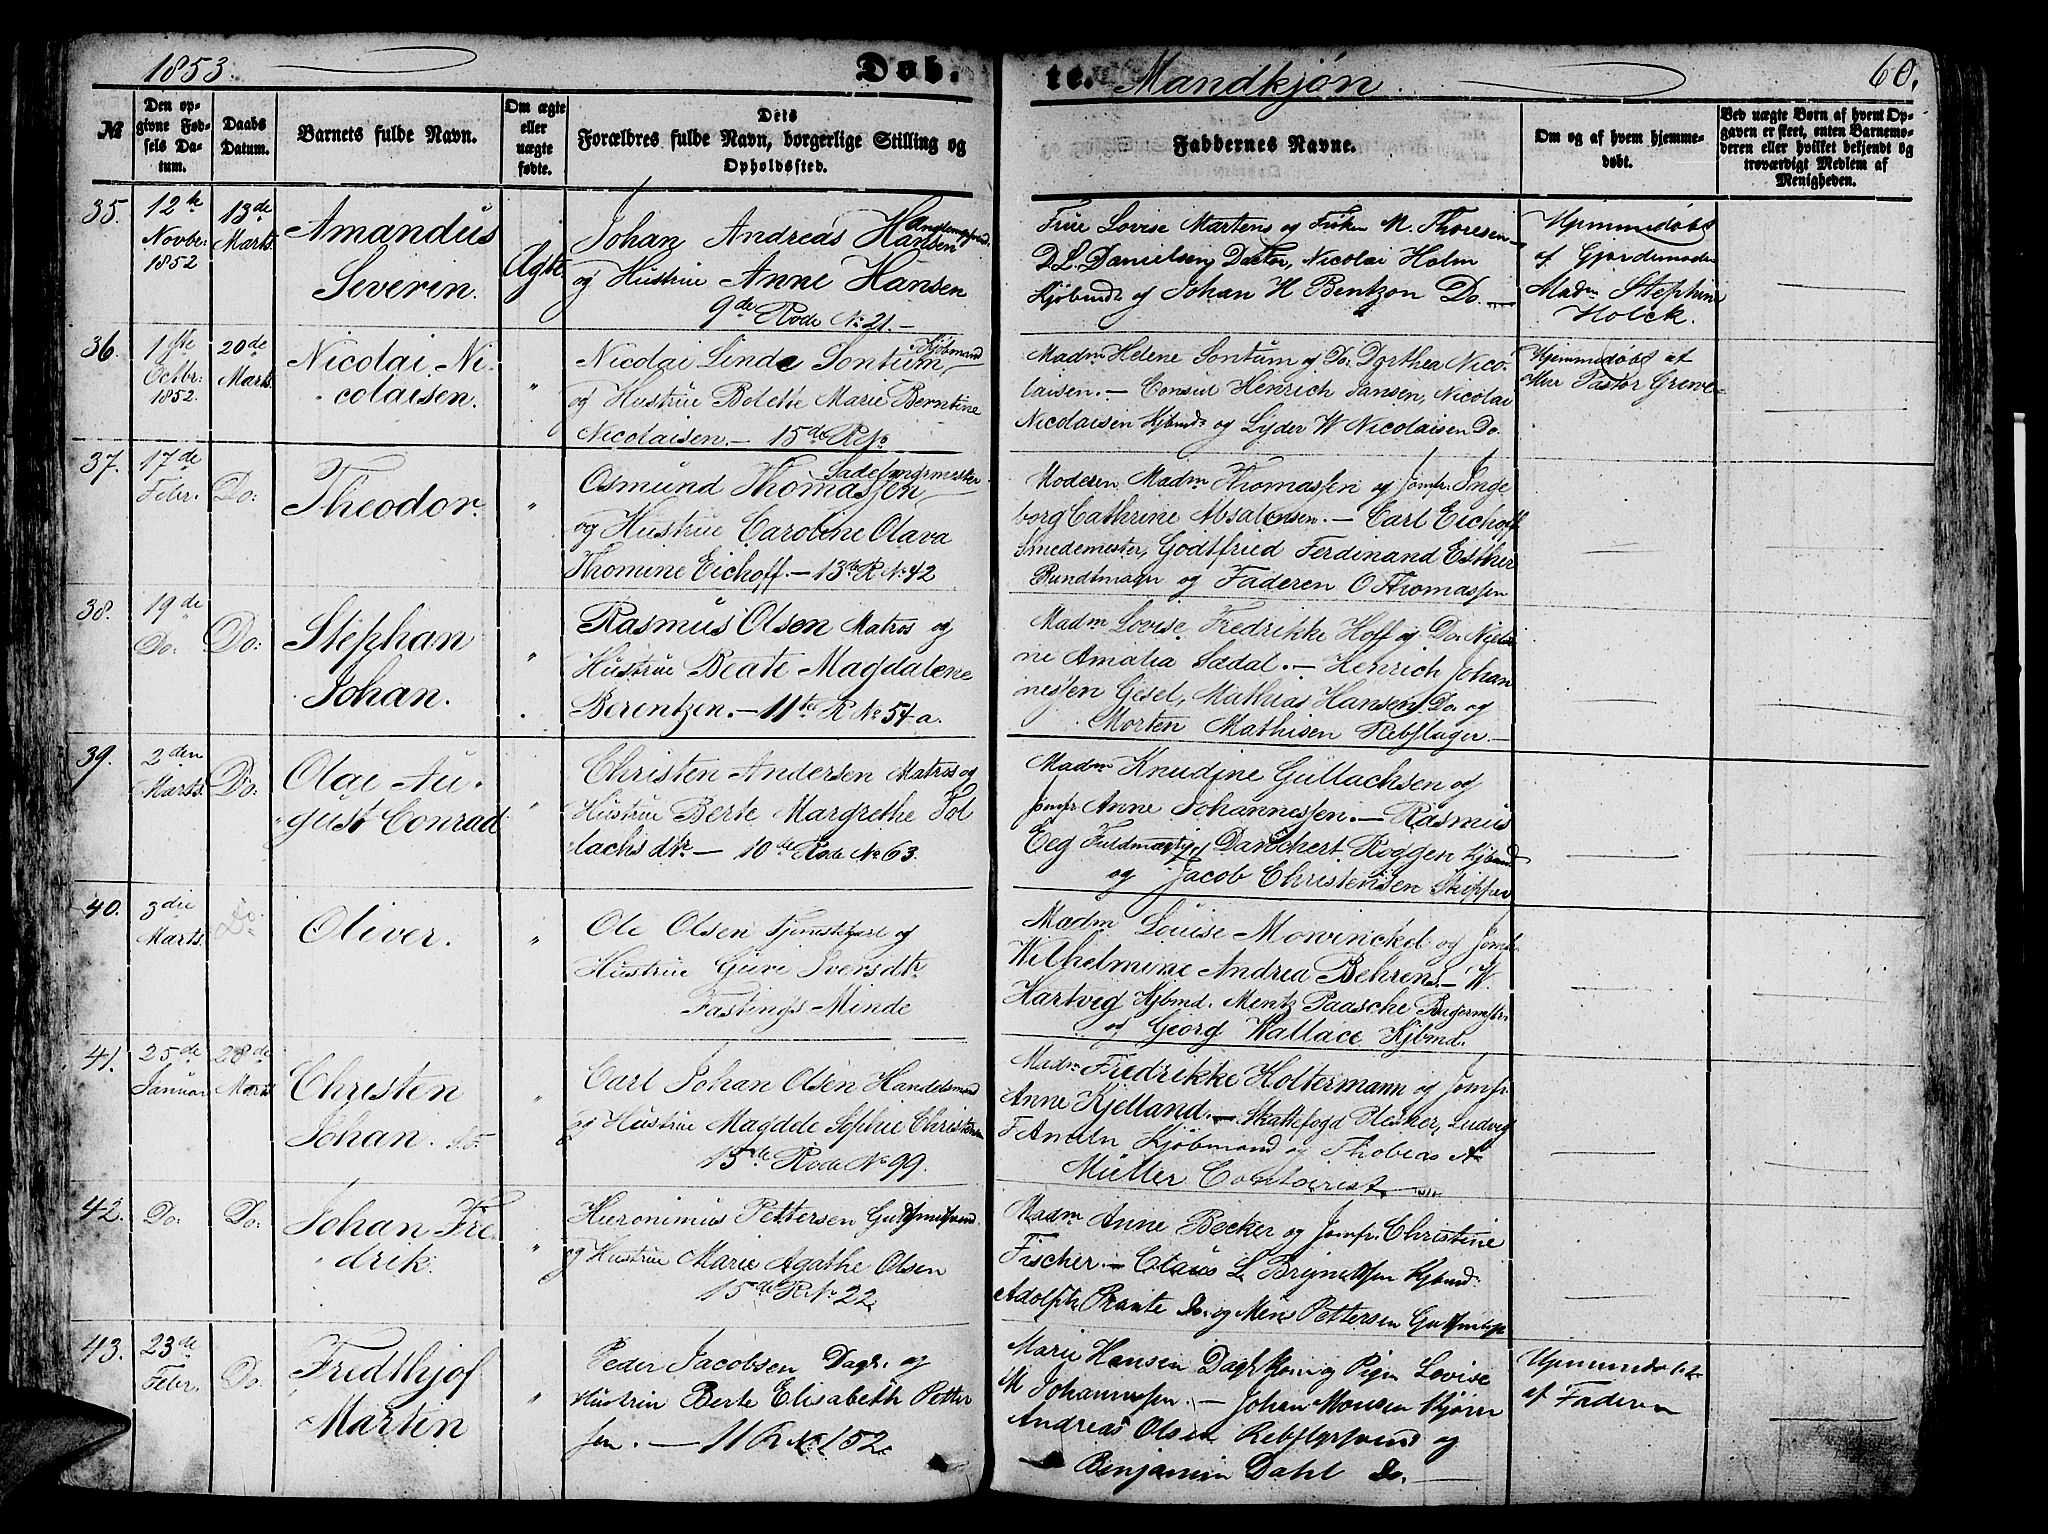 1853.
Døb-
te. Mandkjøn.
60.
No
Den op-
givne Fød-
sels Da-
tum.
Daabs
Datum.
Barnets fulde Navn.
Om ægte
eller
uægte
fødte.
Dets
Forældres fulde Navn, borgerlige Stilling og
Opholdssted.
Faddernes Navne.
Om og af hvem hjemme-
døbt.
Ved uægte Børn af hvem Op-
gaven er skeet, enten Barnemo-
deren eller hvilket bekjendt og
troværdigt Medlem af
Menigheden.
35.
12te
Novbr:
1852
13de
Marts.
Amandus
Severin.
Ægte
Johan Andreas Hansen
og Hustrue Anne Hansen
9de Rode No 21.-
Frue Lovise Martens og Frøken M. Thoresen
D. C. Danielsen, Doctor, Nicolai Holm
Kjøbmd: og Johan H Bentzon Do.-
Hjemmedøbt
af Gjordemoder
Madm Stephine
Holck.
36.
1ste
Octbr:
1852.
20de
Marts.
Nicolai Ni-
colaisen.
"
Nicolai Linde Sontum, Kjøbmand
og Hustrue Bolette Marie Berntine
Nicolaisen.- 15de R No
Madm Helene Sontum og Do. Dorthea Nico-
laisen.- Consul Henrich Jansen, Nicolai
Nicolaisen Kjbmd: og Lyder W Nicolaisen Do.
Hjemmedøbt af
Herr Pastor Greve-
37.
17de
Febr.
Do:
Theodor.
"
Osmund Thomassen, Sadelmagermester
og Hustrue Caroline Olava
Thomine Eichoff.- 13de R No 42
Moderen Madm Thomassen og Jomfr. Inge
borg Cathrine Absalonsen.- Carl Eichoff
Smedemester, Godtfried Ferdinand Esther
Bundtmager og Faderen O Thomassen
38.
19de
Do.
Do:
Stephan
Johan.
"
Rasmus Olsen Matros og
Hustrue Beate Magdalene
Berentzen.- 11te R No 54-a.
Madm Lovise Fredrikke Hoff og Do. Nicoli
ne Amalia Sædal.- Henrich Johan
nessen Gesel, Mathias Hansen Do. og
Morten Mathisen Rebslager.-
39.
2den
Marts.
Do.
Olai Au-
gust Conrad
"
Christen Andersen Matros og
Hustrue Berte Margrethe Tol
lachsdtr.- 10de Rode No 63.
Madm Knudine Gullachsen og
Jomfr Anne Johannessen.- Rasmus
Eeg Fuldmægtig, Danckert Roggen Kjbmd
og Jacob Christensen Skipper
40.
3die
Marts.
Do.
Oliver.
"
Ole Olsen Tjenestkarl og
Hustrue Guri Iversdtr
Fastings Minde
Madm Louise Mowinckel og Jomfr
Wilhelmine Andrea Behrens.- W.
Hartvig Kjbmd. Mentz Paasche Bagermstr:
og Georg Wallace Kjbmd.
41.
25de
Januar
28de
Marts
Christen
Johan.
"
Carl Johan Olsen Handelsmand
og Hustrue Magdele Sophie Christensen
15de Rode No 99.
Madm Fredrikke Holtermann og Jomfr.
Anne Kjelland.- Skattefogd Plesker, Ludvig
Kjøbmand og Thobias A
Müller Contorist.
42.
Do.
Do.
Johan Fre-
drik.
"
Hieronimus Pettersen Guldsmedsvend
og Hustrue Marie Agathe Olsen
15de R No 22.
Madm Anne Becker og Jomfr. Christine
Fischer.- Claus L. Kjbmd.
Adolph Rante Do. og Mens Pettersen
43.
23de
Febr.
Do.
Fredthjof
Martin
"
Peder Jacobsen Dagk. og
Hustrue Berte Elisabeth Petter
sen.- 11 R No 152.
Marie Hansen Dagk. kone og Pigen Lovise
M Johannessen.- Johan Monsen
Andreas Olsen Rebslgrsvend og
Benjamin Dahl Do.
Hjemmedøbt
af Faderen